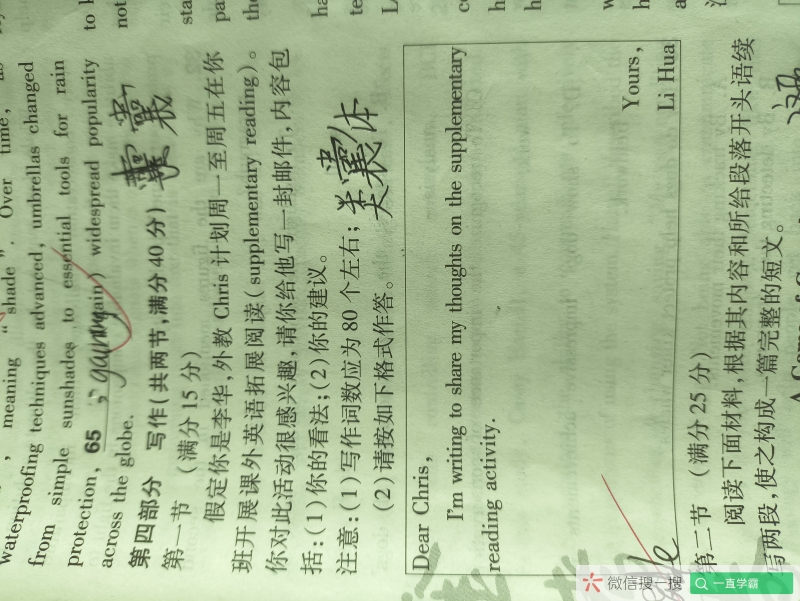 , meaning “ shade ” . Over time, as
waterproofing techniques advanced, umbrellas changed
from simple sunshades to essential tools for rain
protection, 65 , gaining (gain) widespread popularity
across the globe.
第四部分 写作(共两节,满分40分)
第一节 (满分15分)
假定你是李华,外教 Chris 计划周一至周五在你
班开展课外英语拓展阅读(supplementary reading)。
你对此活动很感兴趣,请你给他写一封邮件,内容包
括:(1)你的看法;(2)你的建议。
注意:(1)写作词数应为80个左右;
(2)请按如下格式作答。
类囊体
Dear Chris,
I'm writing to share my thoughts on the supplementary
reading activity.
Yours,
Li Hua
第二节 (满分25分)
阅读下面材料,根据其内容和所给段落开头语续
写两段,使之构成一篇完整的短文。
微信搜一搜
一直学霸